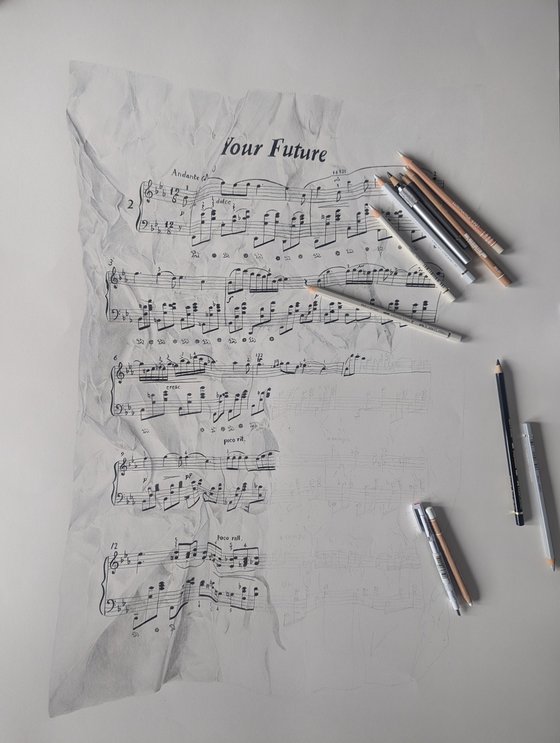 Your Future
Andante
2
p
dolce
3
f
6
cresc
poco rit.
9
p
pp
12
poco rall.